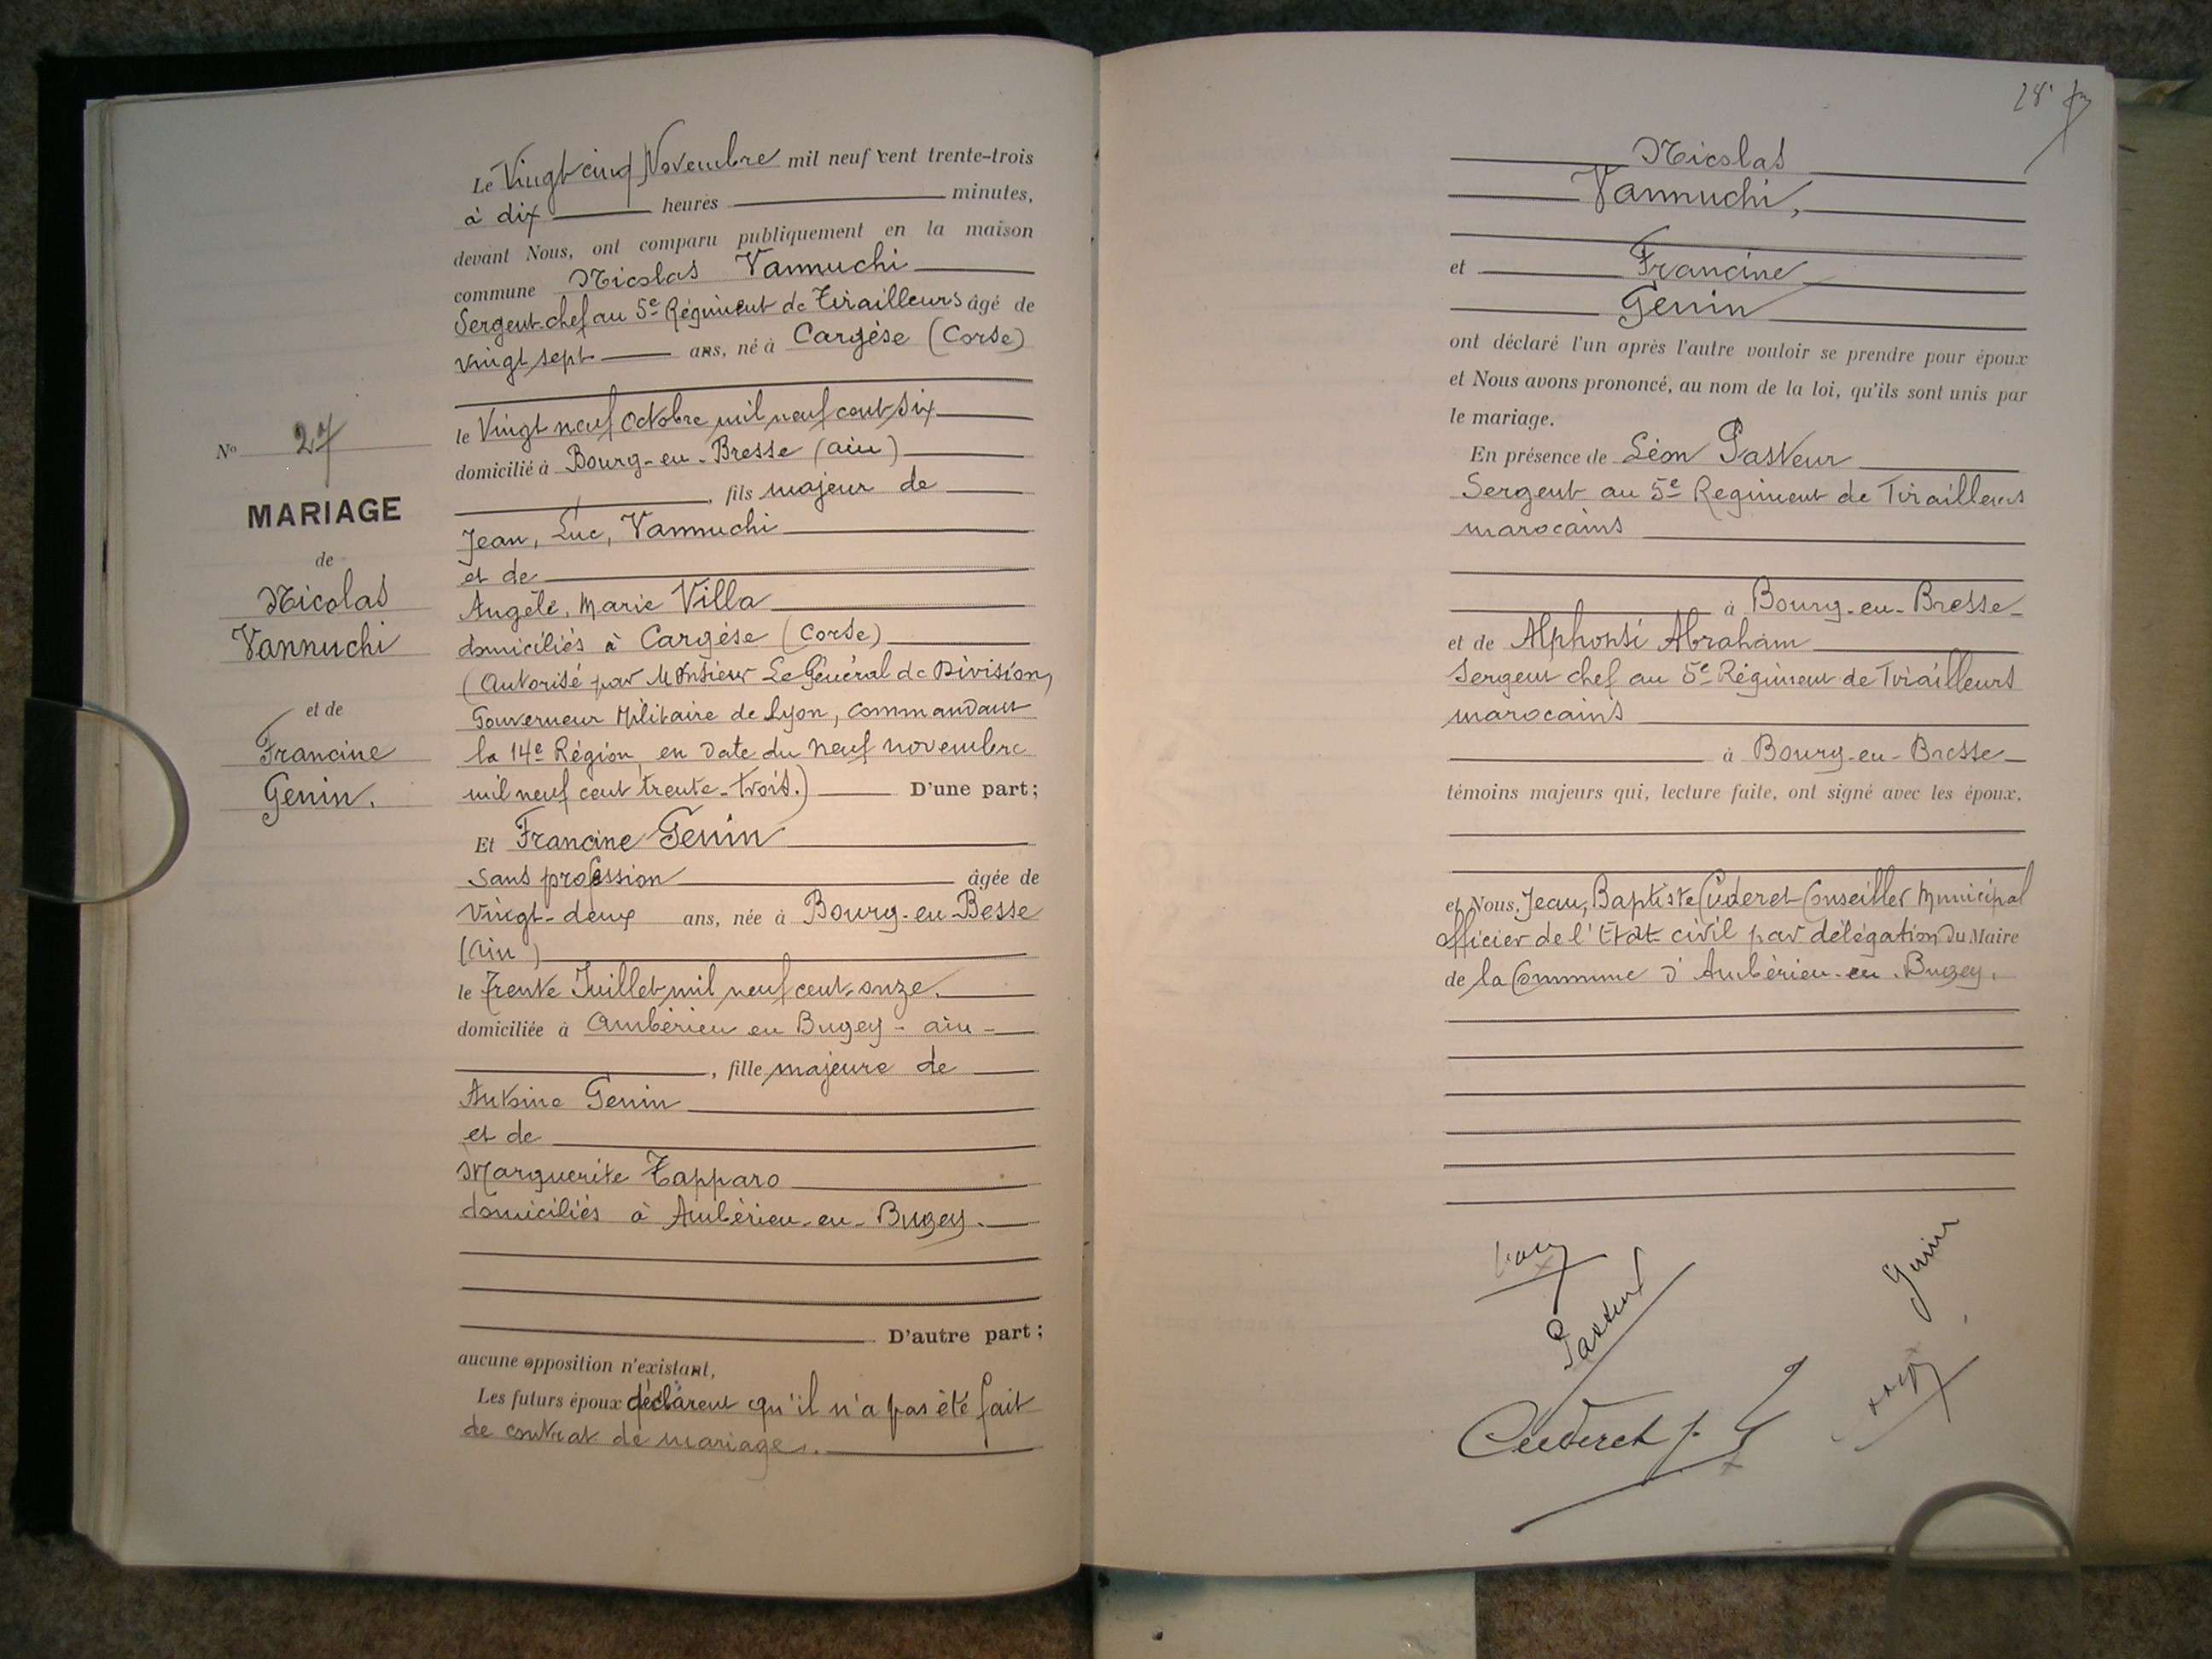 Nº 27
MARIAGE
de
Nicolas
Vannuchi
et de
Francine
Genin.
Le Vingt cinq Novembre mil neuf cent trente-trois
à dix heures minutes,
devant Nous, ont comparu publiquement en la maison
commune Nicolas Vannuchi
Sergent-chef au 5e Régiment de Tirailleurs âgé de
vingt sept ans, né à Cargèse (Corse)
le Vingt neuf Octobre mil neuf cent six
domicilié à Bourg-en-Bresse (ain)
, fils majeur de
Jean, Luc, Vannuchi
et de
Angèle, Marie Villa
domiciliés à Cargèse (Corse)
(Autorisé par Monsieur Le Général de Division,
Gouverneur Militaire de Lyon, commandant
la 14e Région, en date du neuf novembre
mil neuf cent trente-trois.) D'une part;
Et Francine Genin
sans profession âgée de
Vingt-deux ans, née à Bourg-en-Besse
(ain)
le trente Juillet mil neuf cent-onze.
domiciliée à Ambérieu en Bugey - ain -
, fille majeure de
Antoine Genin
et de
Marguerite Tapparo
domiciliés à Ambérieu-en-Bugey.
D'autre part;
aucune opposition n'existant,
Les futurs époux déclarent qu'il n'a pas été fait
de contrat de mariage.
28
Nicolas
Vannuchi,
et Francine
Genin
ont déclaré l'un après l'autre vouloir se prendre pour époux
et Nous avons prononcé, au nom de la loi, qu'ils sont unis par
le mariage.
En présence de Léon Pasteur
Sergent au 5e Regiment de Tirailleurs
marocains
à Bourg-en-Bresse
et de Alphonsi Abraham
Sergent chef au 5e Régiment de Tirailleurs
marocains
à Bourg-en-Bresse
témoins majeurs qui, lecture faite, ont signé avec les époux.
et Nous, Jean, Baptiste Cuderet Conseiller Municipal
officier de l'Etat civil par délégation du Maire
de la Commune d'Ambérieu-en-Bugey.
Genin
Pasteur
Cuderet J.